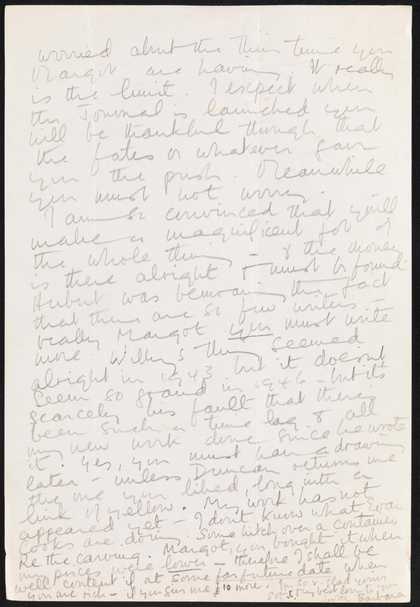 worried about the thin time you
& Margot are having. It really
is the limit. I expect when
the Journal is launched you
will be thankful though that
the fates or whatever gave
you the push. Meanwhile
you must not worry.
I am so convinced that you'll
make a magnificent job of
the whole thing — & the money
is there alright & must be found
Hubert was bemoaning the fact
that there are so few writers —
really Margot you must write
more. Willy's thing seemed
alright in 1943 but it doesn't
seem so grand in 1946 — but it's
scarcely his fault that there's
been such a time lag & all
my new work done since he wrote
it. Yes, you must have a drawing
later — unless Duncan returns me
the one you liked, long with a
link of yellow. My work has not
appeared yet — I don't know what
books are doing. Some hitch over a container
Re the carving. Margot, you bought it when
my prices were lower — therefore I shall be
well content if at some far future date when
you are rich — if you give me £10 more. I'm so glad
Barbara